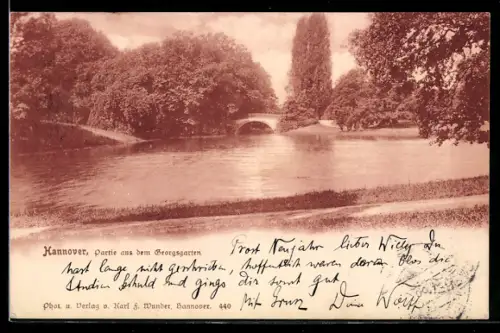 Hannover, Partie aus dem Georgsgarten
Prost Neujahr lieber Willy Du
hast lange nicht geschrieben, hoffentlich waren daran bloss die
Studien Schuld und gings dir sonst gut
Mit Gruss Dein Wolff
Phot. u. Verlag v. Karl F. Wunder, Hannover. 440